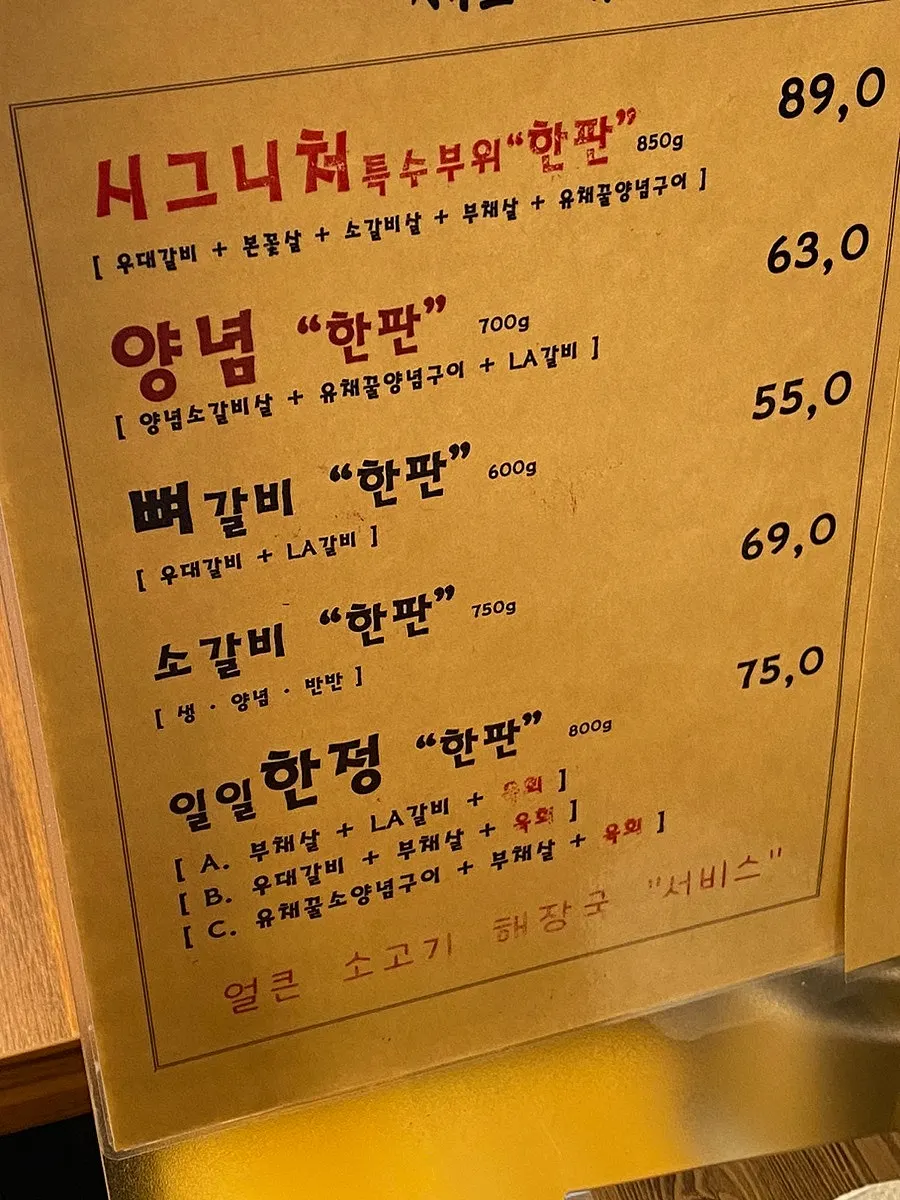 시그니처 특수부위 “한판” 850g 89,0
[ 우대갈비 + 본꽃살 + 소갈비살 + 부채살 + 유채꿀양념구이 ]
양념 “한판” 700g 63,0
[ 양념소갈비살 + 유채꿀양념구이 + LA갈비 ]
뼈갈비 “한판” 600g 55,0
[ 우대갈비 + LA갈비 ]
소갈비 “한판” 750g 69,0
[ 생 · 양념 · 반반 ]
일일한정 “한판” 800g 75,0
[ A. 부채살 + LA갈비 + 육회 ]
[ B. 우대갈비 + 부채살 + 육회 ]
[ C. 유채꿀소양념구이 + 부채살 + 육회 ]
얼큰 소고기 해장국 "서비스"